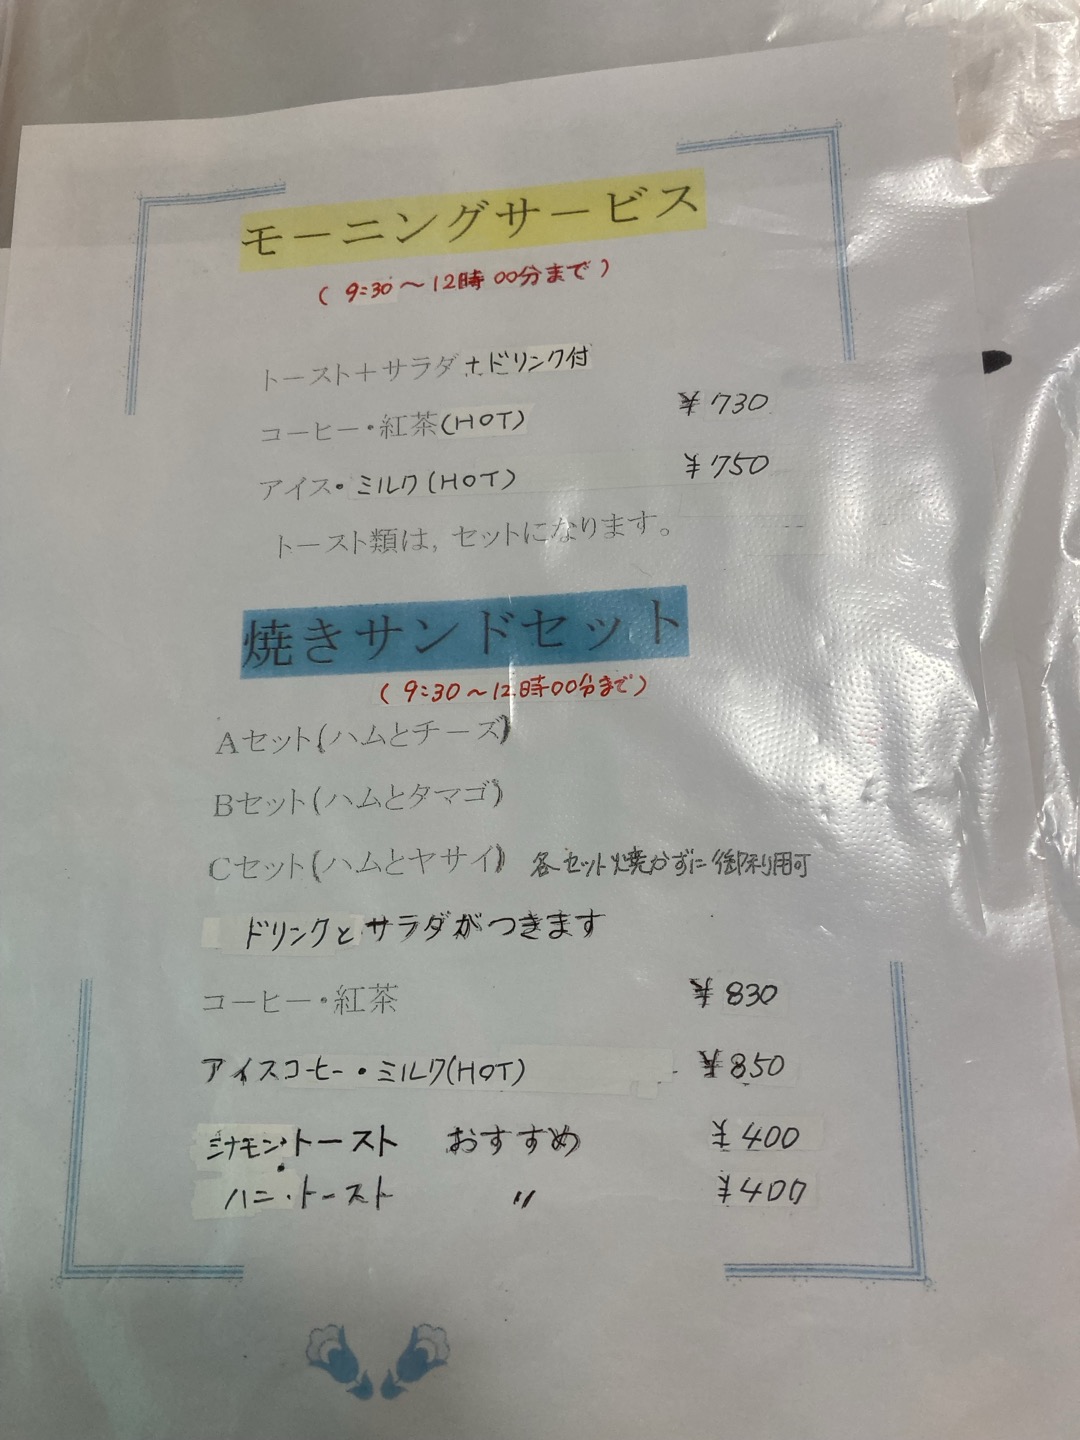 モーニングサービス
(9:30〜12時00分まで)
トースト+サラダ+ドリンク付
コーヒー・紅茶(HOT) ¥730
アイス・ミルク(HOT) ¥750
トースト類は,セットになります。
焼きサンドセット
(9:30〜12時00分まで)
Aセット(ハムとチーズ)
Bセット(ハムとタマゴ)
Cセット(ハムとヤサイ) 各セット焼かずに御利用可
ドリンクとサラダがつきます
コーヒー・紅茶 ¥830
アイスコーヒー・ミルク(HOT) ¥850
ミナモン・トースト おすすめ ¥400
ハニ・トースト 〃 ¥400